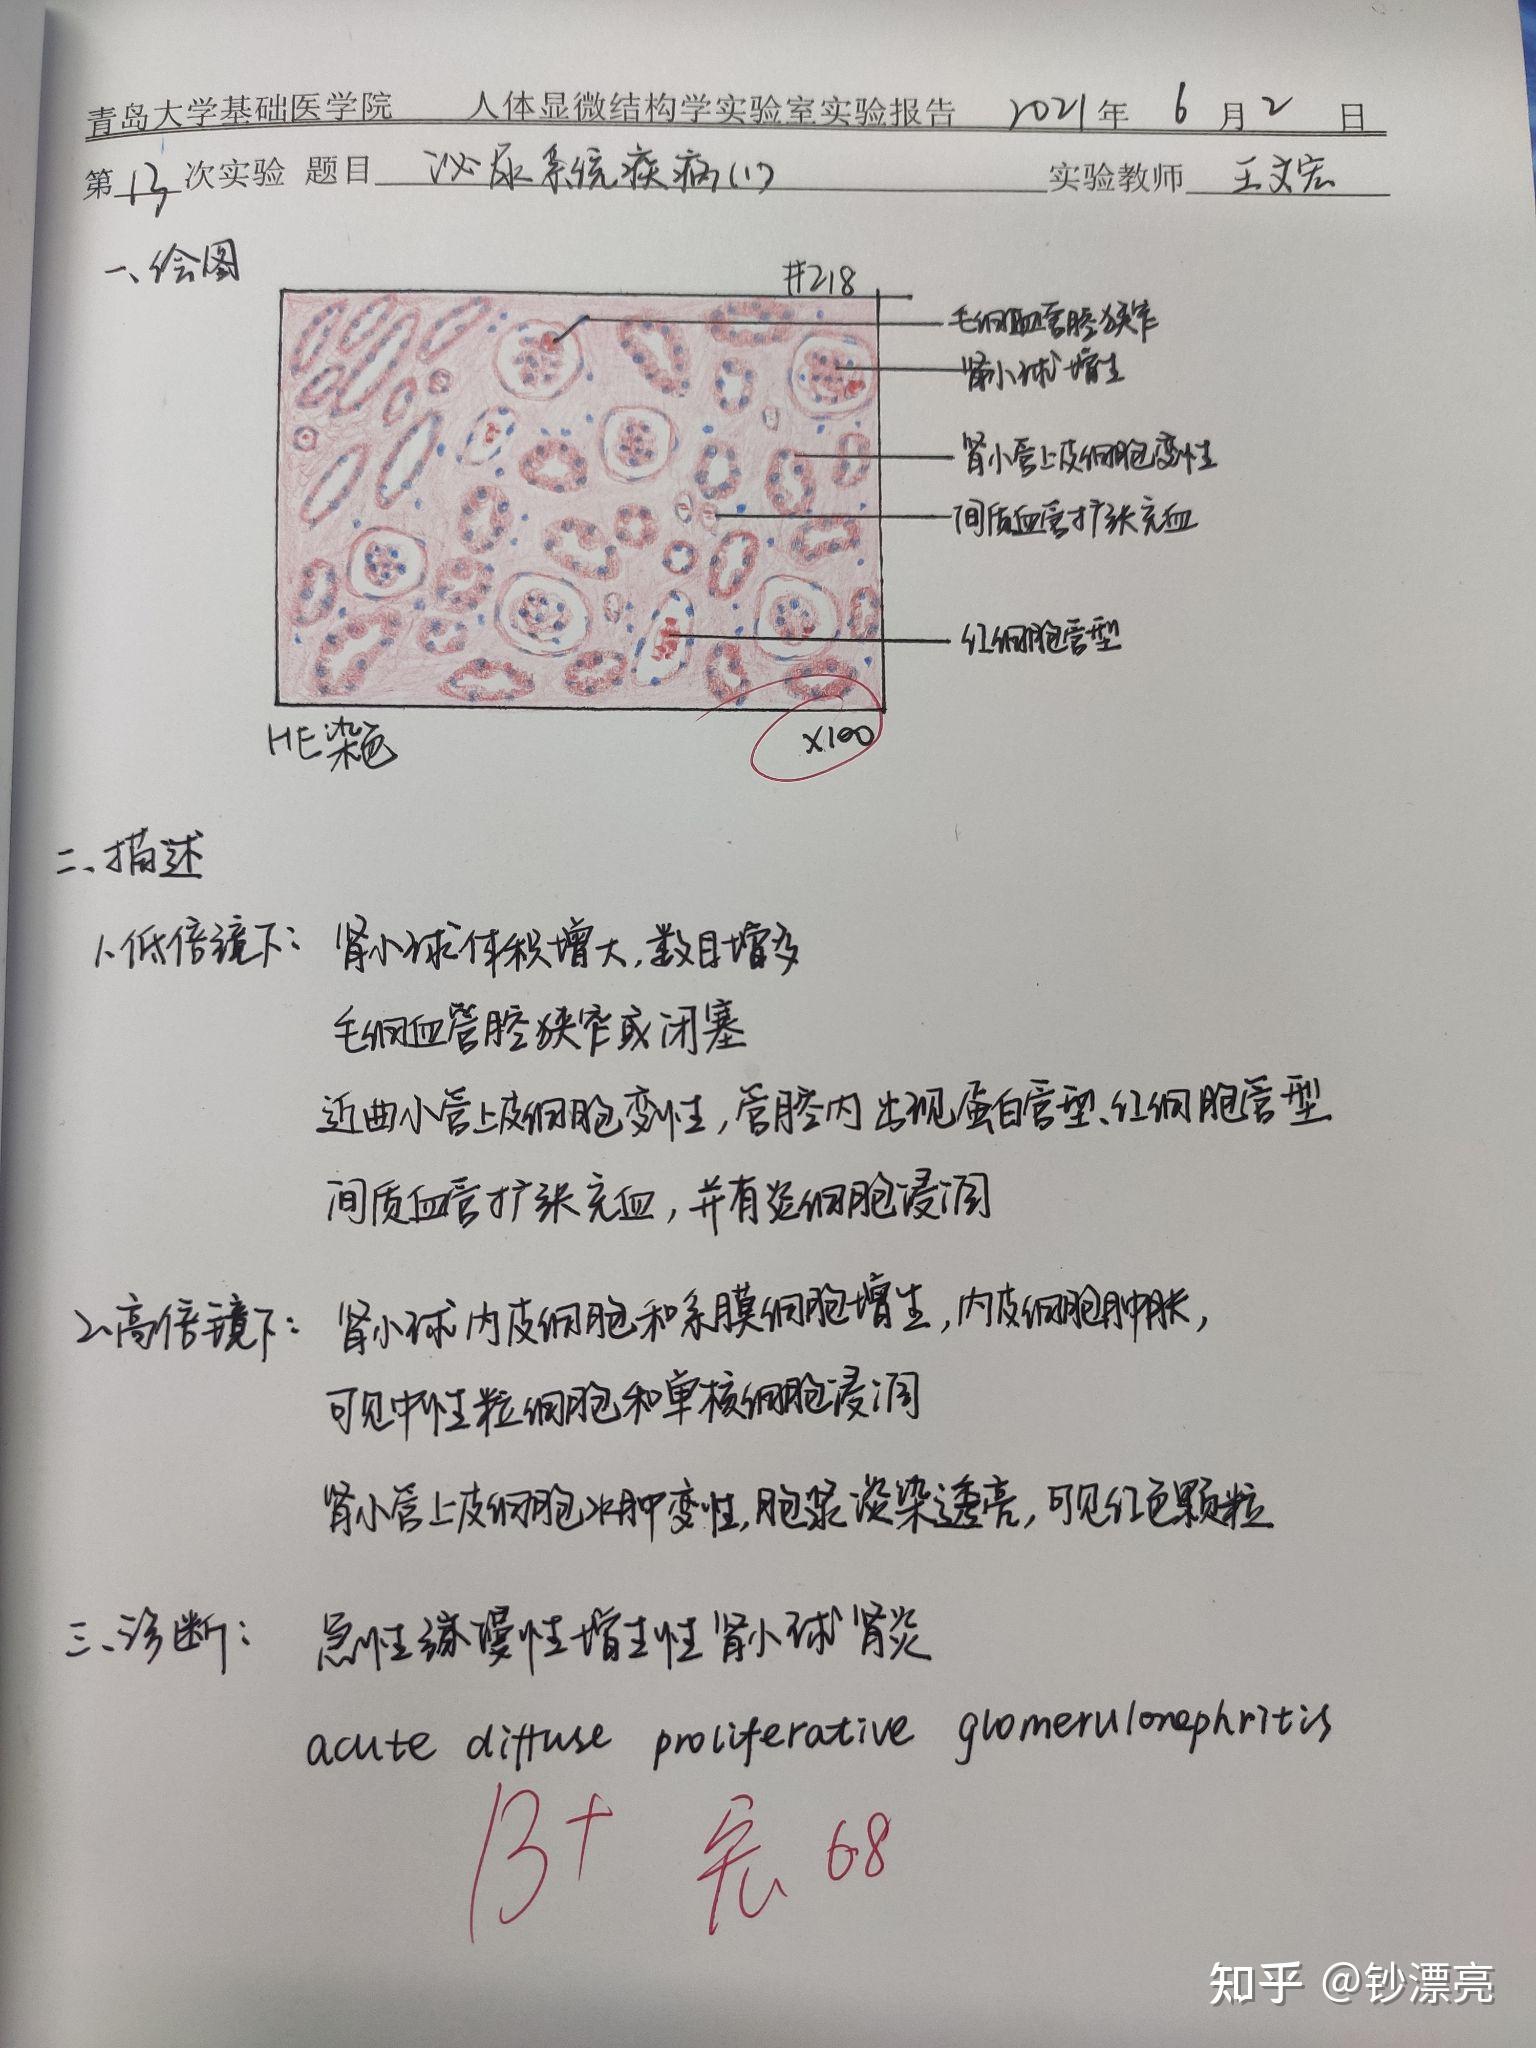 青岛大学基础医学院 人体显微结构学实验室实验报告 2021年 6月2日
第13次实验 题目 泌尿系统疾病(1) 实验教师 王文宏
一、绘图
#218
毛细血管腔狭窄
肾小球增生
肾小管上皮细胞变性
间质血管扩张充血
红细胞管型
HE染色
×100
二、描述
1、低倍镜下: 肾小球体积增大,数目增多
毛细血管腔狭窄或闭塞
近曲小管上皮细胞变性,管腔内出现蛋白管型、红细胞管型
间质血管扩张充血,并有炎细胞浸润
2、高倍镜下: 肾小球内皮细胞和系膜细胞增生,内皮细胞肿胀,
可见中性粒细胞和单核细胞浸润
肾小管上皮细胞水肿变性,胞浆淡染透亮,可见红色颗粒
三、诊断: 急性弥漫性增生性肾小球肾炎
acute diffuse proliferative glomerulonephritis
B+ 宏 68
知乎 @钞漂亮